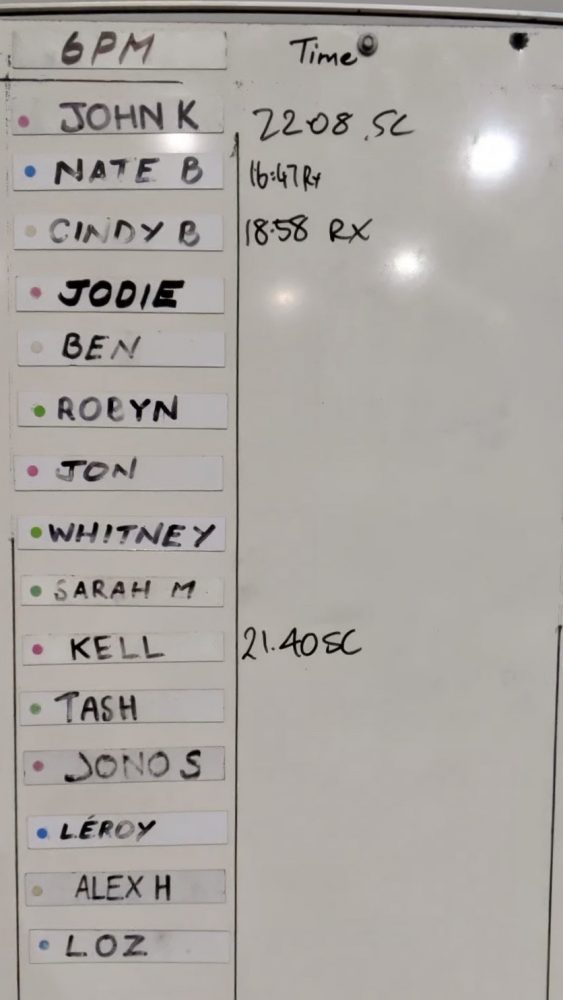 6PM Time
JOHN K 22.08 .SC
NATE B 16:47 Rx
CINDY B 18:58 RX
JODIE
BEN
ROBYN
JON
WHITNEY
SARAH M
KELL 21.40 SC
TASH
JONO S
LÉROY
ALEX H
LOZ